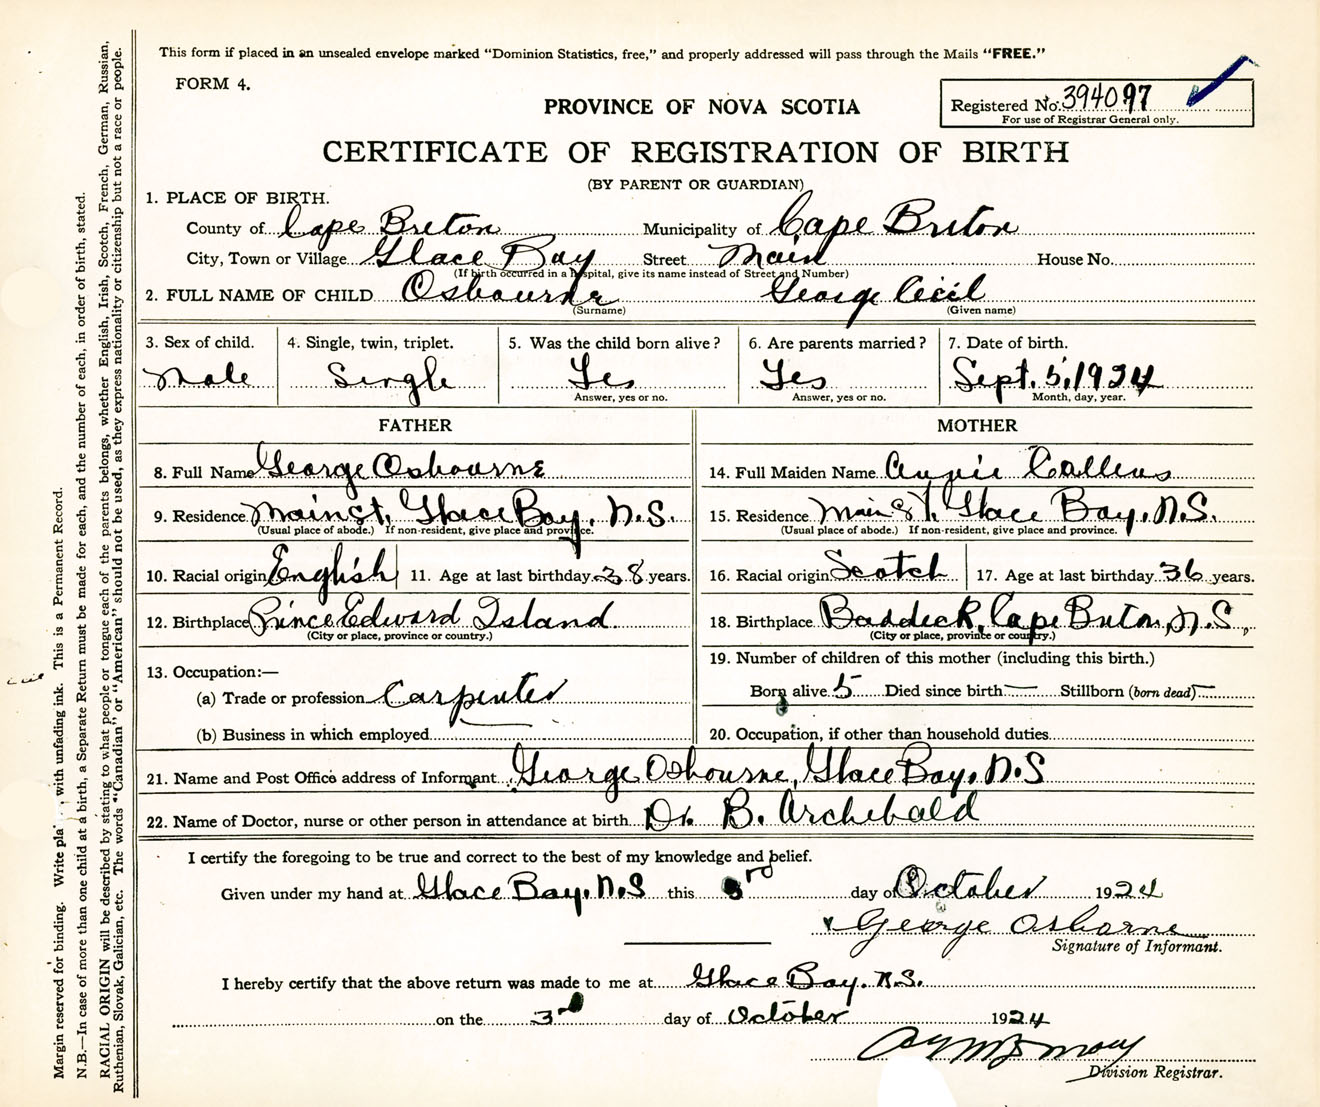 This form if placed in an unsealed envelope marked "Dominion Statistics, free," and properly addressed will pass through the Mails "FREE."
FORM 4.
PROVINCE OF NOVA SCOTIA
Registered No. 394097
For use of Registrar General only.
CERTIFICATE OF REGISTRATION OF BIRTH
(BY PARENT OR GUARDIAN)
1. PLACE OF BIRTH.
County of Cape Breton Municipality of Cape Breton
City, Town or Village Glace Bay Street Main House No.
(If birth occurred in a hospital, give its name instead of Street and Number)
2. FULL NAME OF CHILD Osbourne George Cecil
(Surname) (Given name)
3. Sex of child. 4. Single, twin, triplet. 5. Was the child born alive? 6. Are parents married? 7. Date of birth.
Male Single Yes Yes Sept. 5, 1924
Answer, yes or no. Answer, yes or no. Month, day, year.
FATHER MOTHER
8. Full Name George Osbourne 14. Full Maiden Name Callens
9. Residence Main St, Glace Bay, N.S. 15. Residence Main St, Glace Bay, N.S.
(Usual place of abode.) If non-resident, give place and province. (Usual place of abode.) If non-resident, give place and province.
10. Racial origin English 11. Age at last birthday 38 years. 16. Racial origin Scotch 17. Age at last birthday 36 years.
12. Birthplace Prince Edward Island 18. Birthplace Baddeck, Cape Breton, N.S,
(City or place, province or country.) (City or place, province or country.)
13. Occupation:— 19. Number of children of this mother (including this birth.)
(a) Trade or profession Carpenter Born alive 5 Died since birth — Stillborn (born dead) —
(b) Business in which employed 20. Occupation, if other than household duties
21. Name and Post Office address of Informant George Osbourne, Glace Bay, N.S
22. Name of Doctor, nurse or other person in attendance at birth Dr. B. Archibald
I certify the foregoing to be true and correct to the best of my knowledge and belief.
Given under my hand at Glace Bay, N.S this 3rd day of October 1924
George Osborne
Signature of Informant.
I hereby certify that the above return was made to me at Glace Bay. N.S.
on the 3rd day of October 1924
Division Registrar.
Margin reserved for binding. Write with unfading ink. This is a Permanent Record.
N.B.—In case of more than one child at a birth, a Separate Return must be made for each, and the number of each, in order of birth, stated.
RACIAL ORIGIN will be described by stating to what people or tongue each of the parents belongs, whether English, Irish, Scotch, French, German, Russian,
Ruthenian, Slovak, Galician, etc. The words "Canadian" or "American" should not be used, as they express nationality or citizenship but not a race or people.